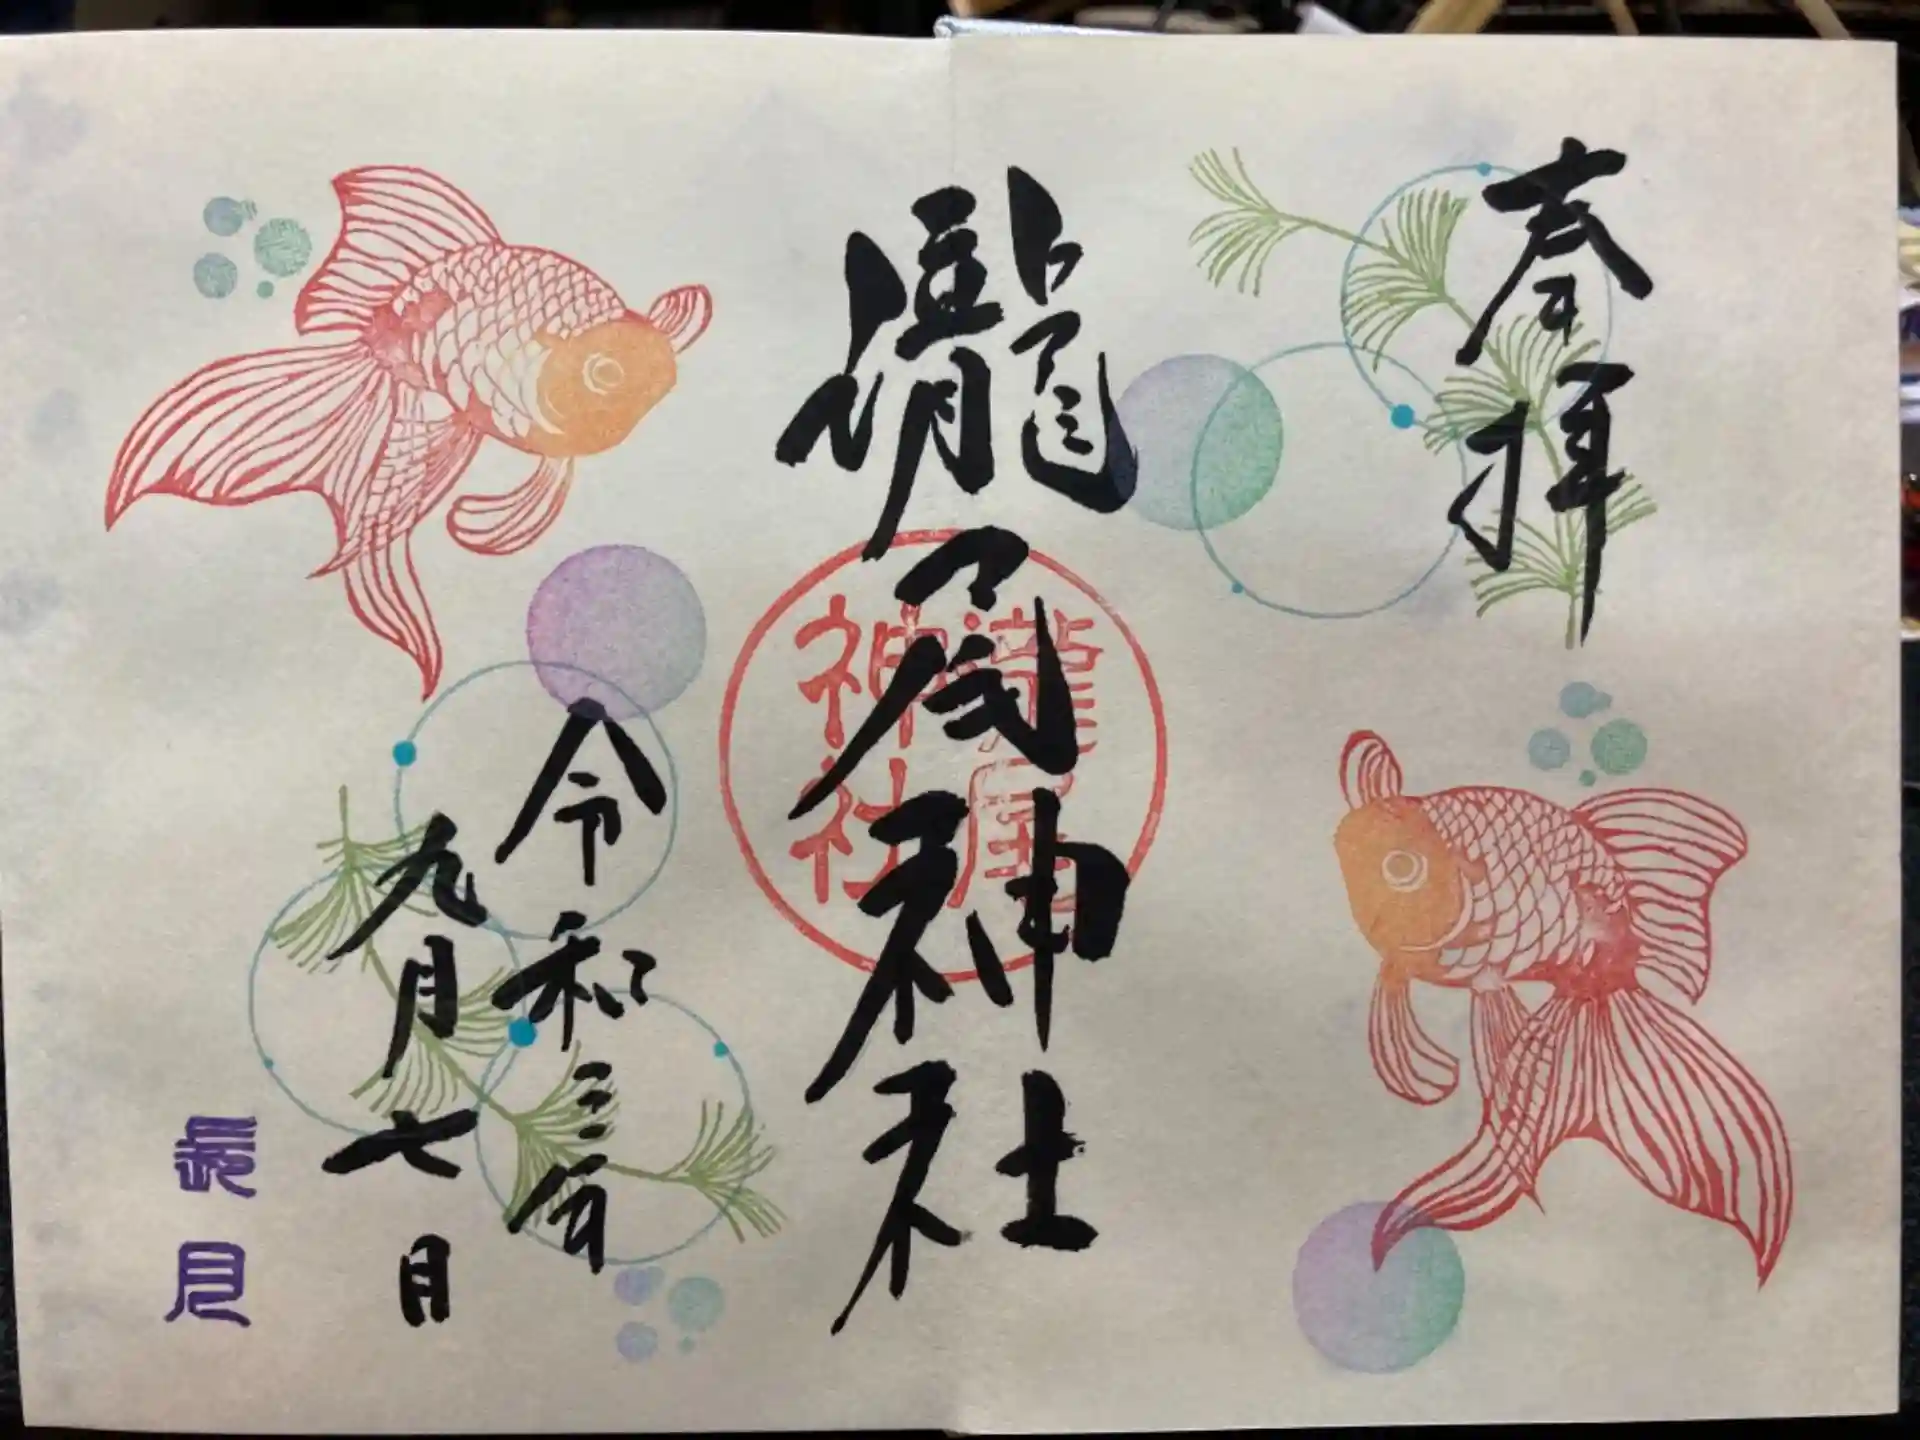 奉拝
龍尾神社
龍尾
神社
令和三年
九月七日
長月